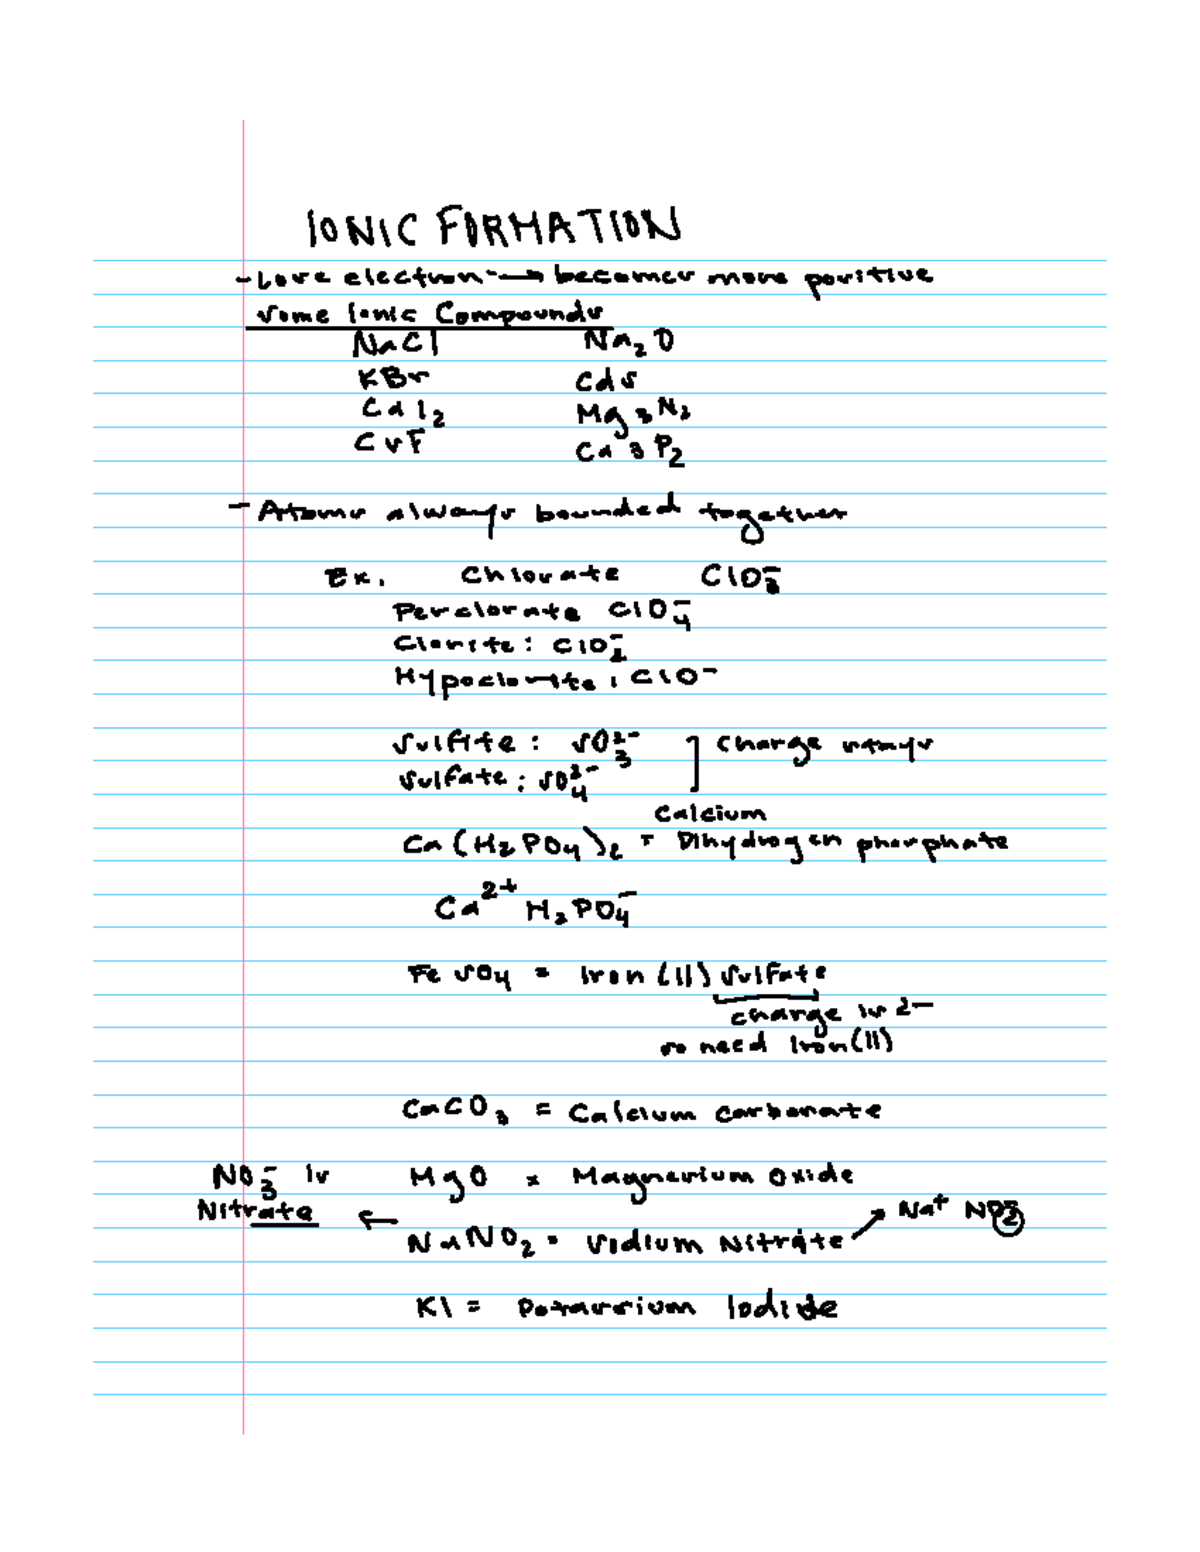 IONIC FORMATION
- Lose electron → becomes more positive
Some Ionic Compounds
NaCl Na₂O
KBr CdS
CaI₂ Mg₃N₂
CsF Ca₃P₂
- Atoms always bounded together
Ex. Chlorate ClO₃⁻
Perclorate ClO₄⁻
Clorite: ClO₂⁻
Hypoclorite: ClO⁻
Sulfite: SO₃²⁻ ] Charge stays
Sulfate: SO₄²⁻
Calcium
Ca(H₂PO₄)₂ = Dihydrogen phosphate
Ca²⁺ H₂PO₄⁻
FeSO₄ = Iron (II) Sulfate
charge is 2-
so need Iron (II)
CaCO₃ = Calcium carbonate
NO₃⁻ is MgO = Magnesium Oxide
Nitrate ← → Na⁺ NO₂⁻
NaNO₂ = Sodium Nitrate
KI = Potassium Iodide